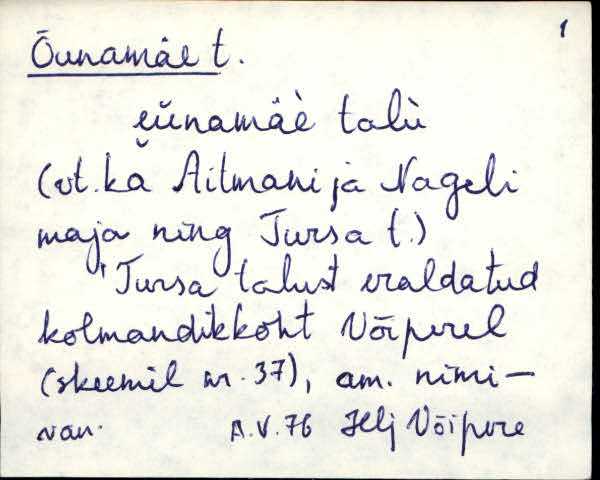 1
Õunamäe t.
eùnamäè talù
(vt. ka Aitmani ja Nageli
maja ning Tursa t.)
'Tursa talust eraldatud
kolmandikkoht Võiperel
(skeemil nr. 37), am. nimi —
van. A.V. 76 Helj Võipere